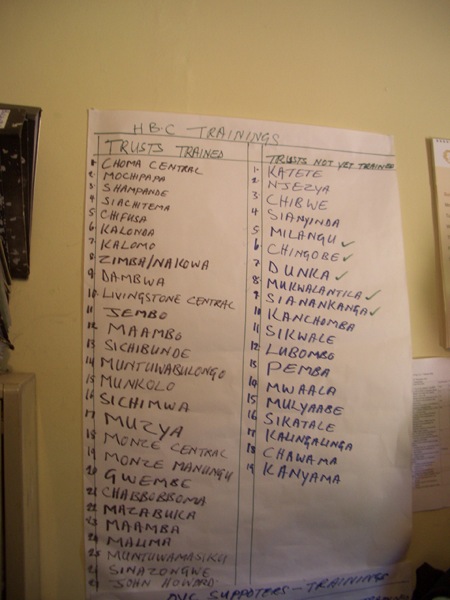 H.B.C TRAININGS
TRUSTS TRAINED
1 CHOMA CENTRAL
2 MOCHIPAPA
3 SHAMPANDE
4 SIACHITEMA
5 CHIFUSA
6 KALONDA
7 KALOMO
8 ZIMBA/NAKOWA
9 DAMBWA
10 LIVINGSTONE CENTRAL
11 JEMBO
12 MAAMBO
13 SICHIBUNDE
14 MUNTUWABULONGO
15 MUNKOLO
16 SICHIMWA
17 MUZYA
18 MONZE CENTRAL
19 MONZE MANUNGU
20 GWEMBE
21 CHABBOBBOMA
22 MAZABUKA
23 MAAMBA
24 MALIMA
25 MUNTUWAMASIKU
26 SINAZONGWE
27 JOHN HOWARD
TRUSTS NOT YET TRAINED
1. KATETE
2 NJEZYA
3 CHIBWE
4 SIANYINDA
5 MILANGU ✓
6 CHINGOBE ✓
7 DUNKA ✓
8 MUKWALANTILA ✓
9 SIANANKANGA ✓
10 KANCHOMBA
11 SIKWALE
12 LUBOMBO
13 PEMBA
14 MWAALA
15 MULYAABE
16 SIKATALE
17 KALINGALINGA
18 CHAWAMA
19 KANYAMA
OVC SUPPOTERS - TRAININGS